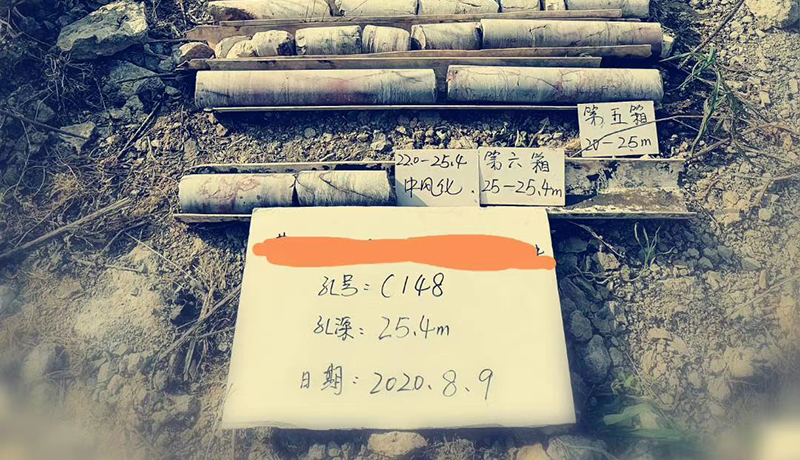 第五箱
20-25m
22.0-25.4
中风化.
第六箱
25-25.4m
孔号:C148
孔深:25.4m
日期:2020.8.9